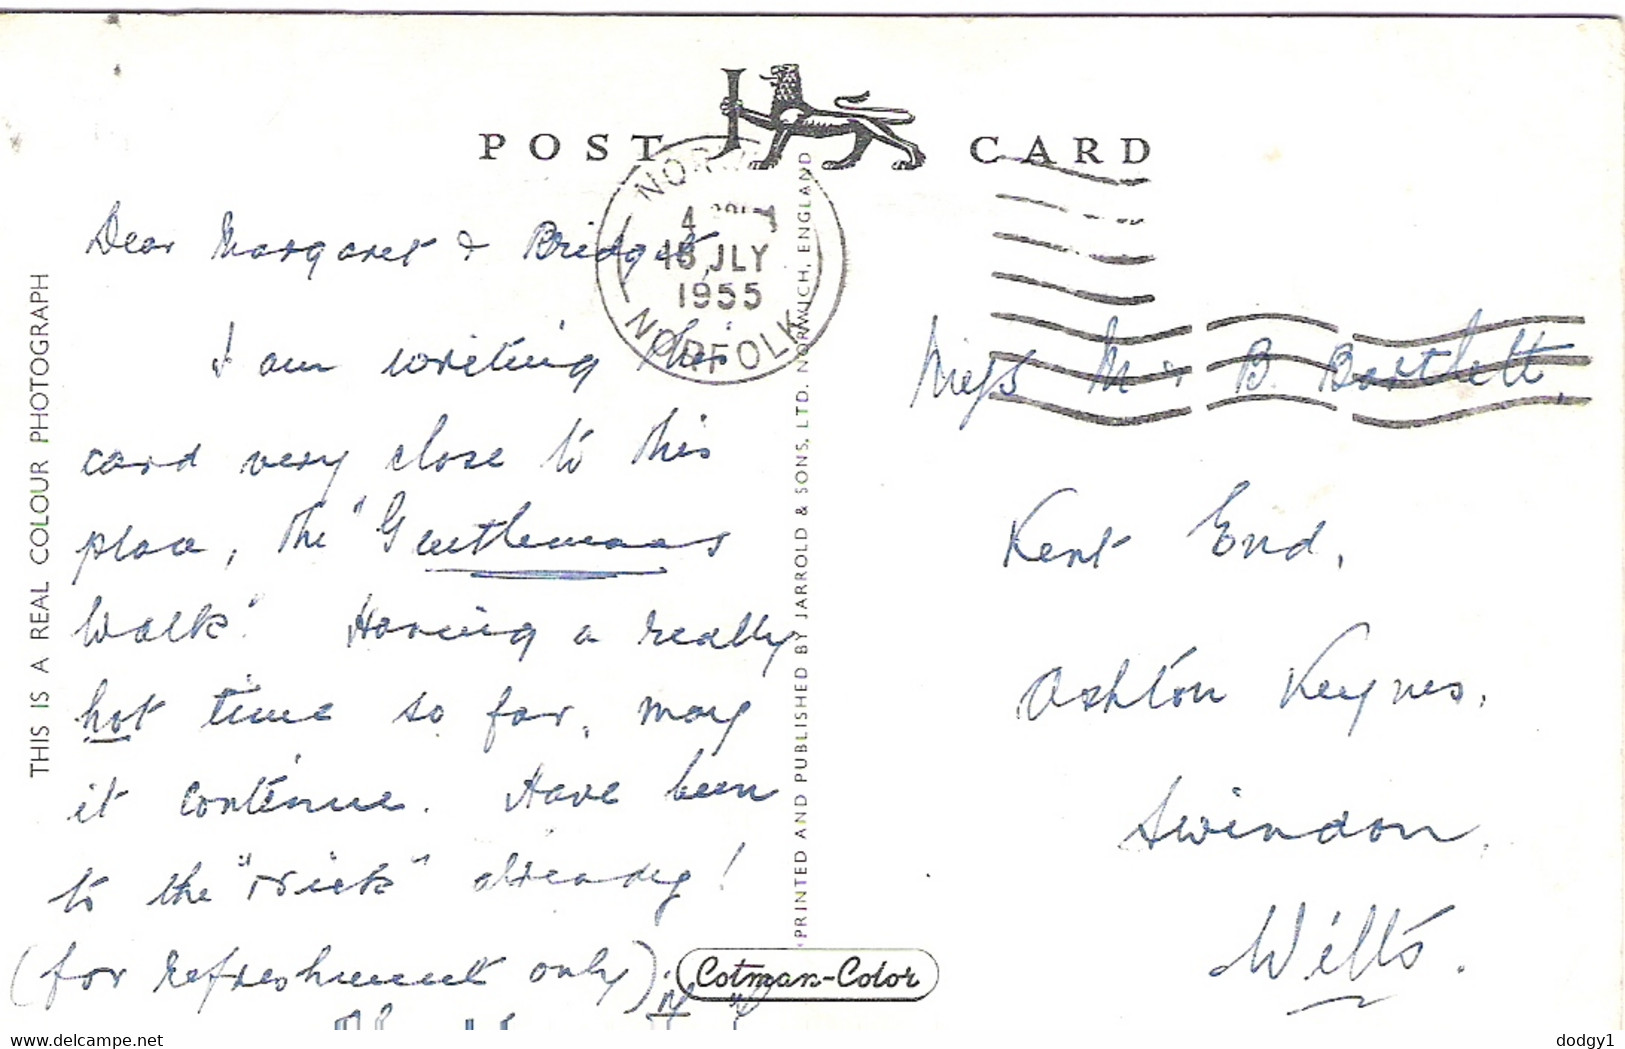 POST CARD
NORWICH
4
18 JLY
1955
NORFOLK
THIS IS A REAL COLOUR PHOTOGRAPH
PRINTED AND PUBLISHED BY JARROLD & SONS, LTD. NORWICH, ENGLAND
Dear Margaret & Bridget,
I am writing this
card very close to this
place, the "Gentlemans
Walk". Having a really
hot time so far, may
it continue. Have been
to the already!
(for refreshment only).
Miss M & B. Bartlett,
Kent End,
Ashton Keynes,
Swindon,
Wilts.
Cotman-Color
www.delcampe.net
dodgy1